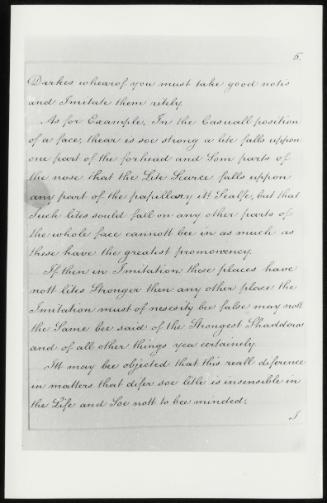 5.
Darkes whearof you must take good notis
and Imitate them ritely.
As for Example, In the Casuall position
of a face; thear is soe strong a lite falls uppon
one part of the forhead and Som parts of
the nose that the Lite Scarce falls uppon
any part of the papillary it Sealfe, but that
Such lites sould fall on any other parts of
the whole face cannott bee in as much as
these have the greatest promonency.
If then in Imitation these places have
nott lites Stronger then any other place the
Imitation must of nesesity bee false may nott
the Same bee said of the Strongest Shaddows
and of all other things yea certainely.
Itt may bee objected that this reall diference
in matters that difer soe litle is insensible in
the Life and Soe nott to bee minded;
I